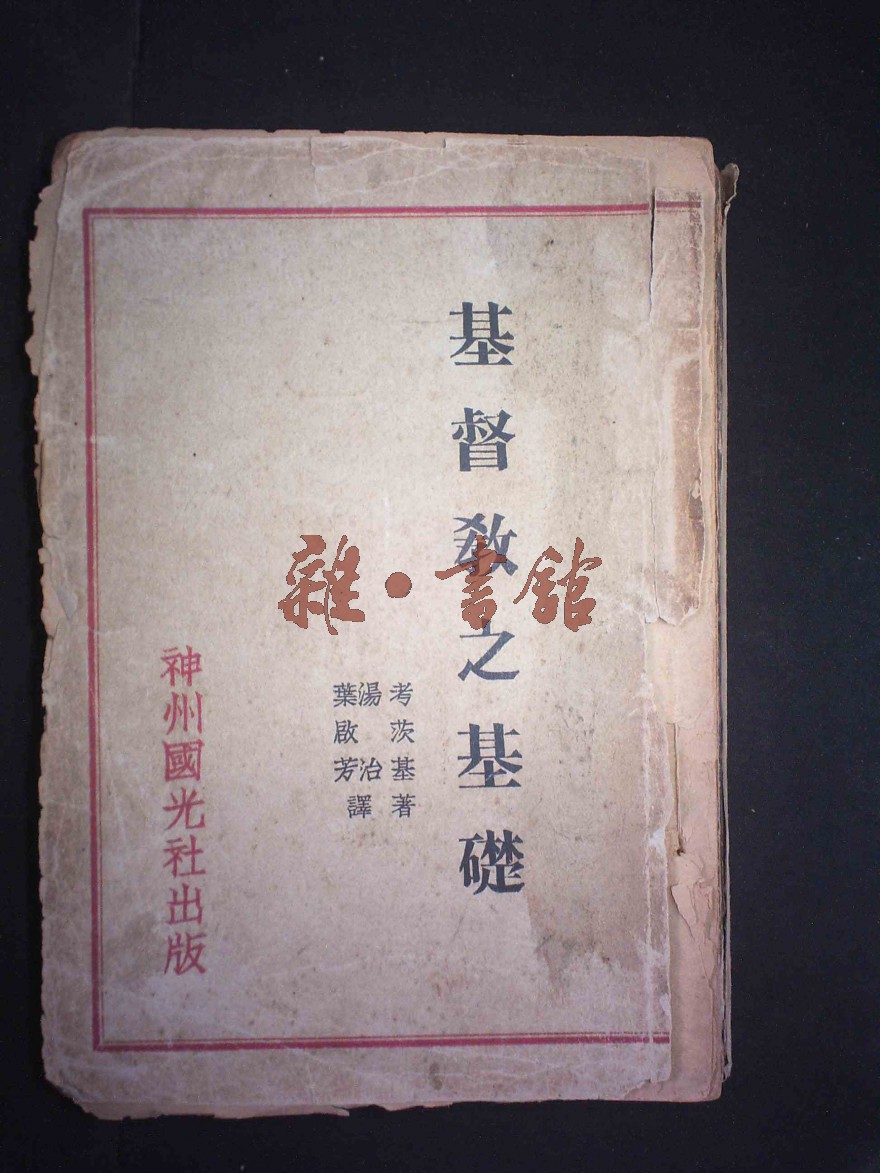 基督教之基礎
考茨基著
湯治
葉啟芳
譯
神州國光社出版
雜·書館